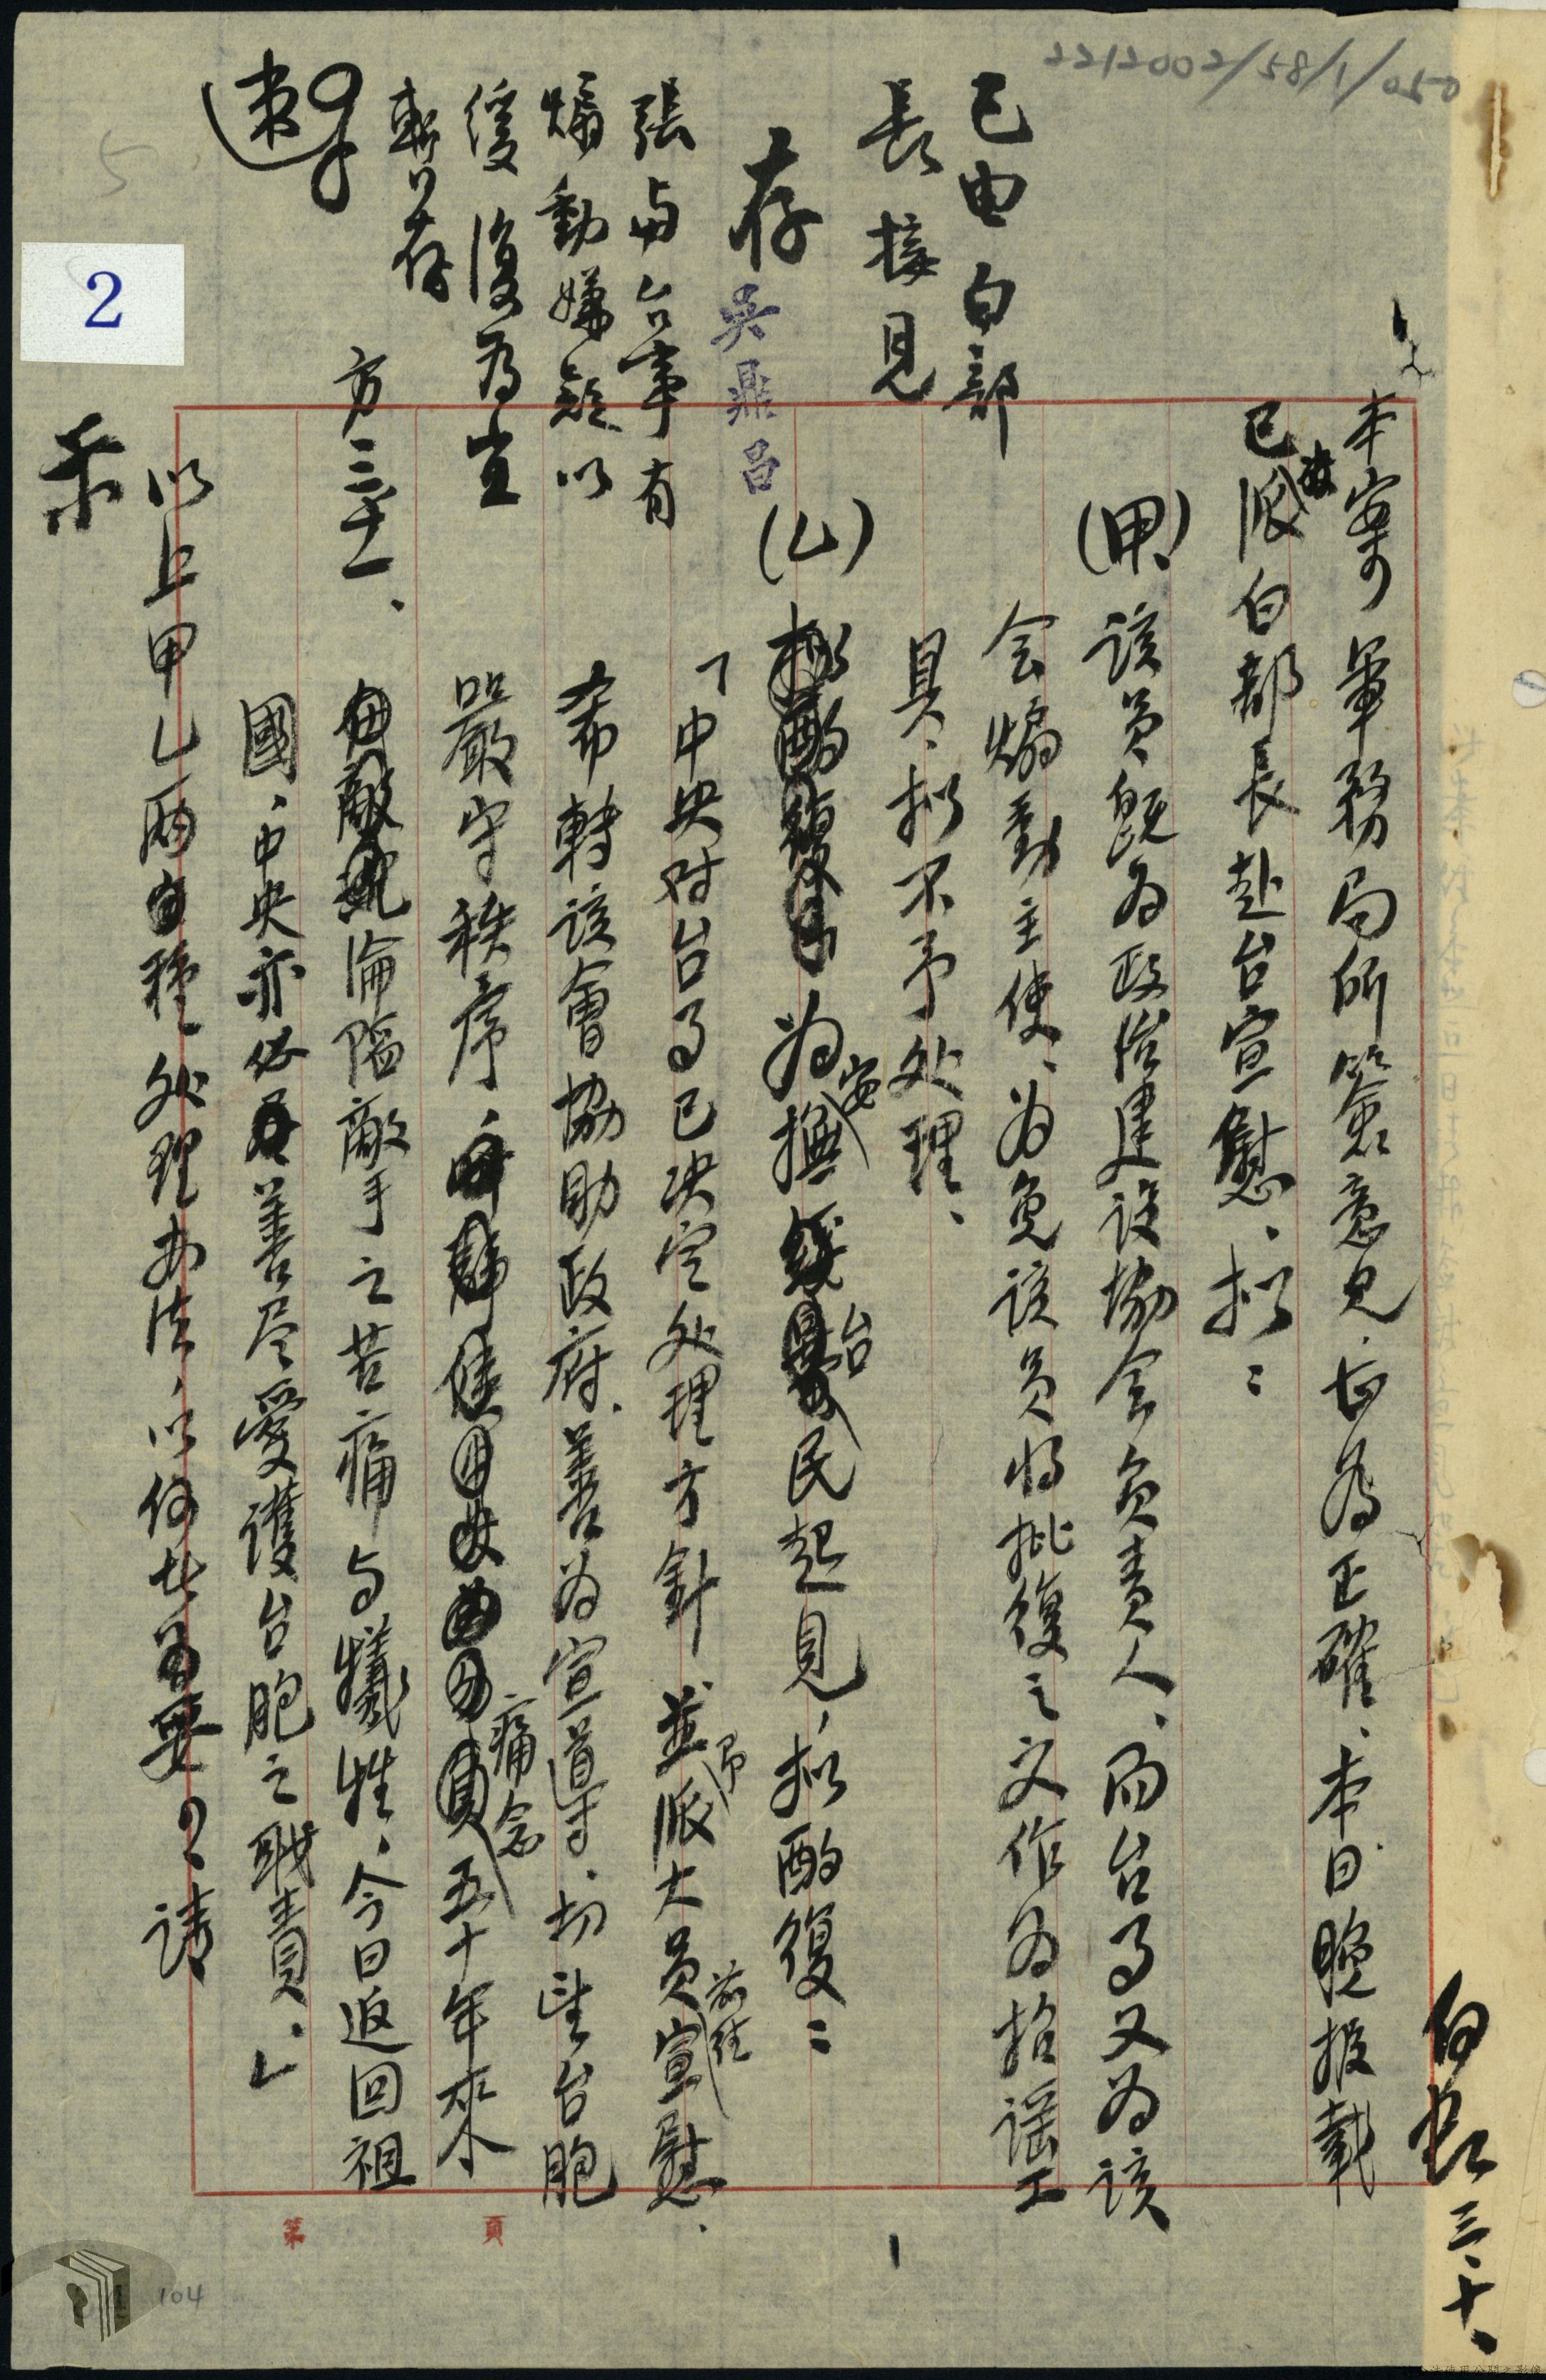 2212002/58/1/050
已由白部
長接見
存
吳鼎昌
張与台事有
煽動嫌疑以
緩復為宜
暫存
方 三、十一、
速
2
5
本案軍務局所簽意見、甚為正確、本日晚報載
已決派白部長赴台宣慰、擬：
(甲) 該員既為政治建設協会負責人、而台事又為該
会煽動主使、為免該員将批復之文作為招謠工
具、拟不予处理、
(乙) 為安撫台民起見，拟酌復：
「中央对台事已决定处理方針並予派大員前往宣慰、
希轉該會協助政府、善為宣導、切望台胞
嚴守秩序、痛念五十年來
淪陷敵手之苦痛与犧牲、今日返回祖
國、中央亦必善尽愛護台胞之職責、」
以上甲乙兩種处理办法，以何者為要？、請
示
三、十、
第 頁
1
104